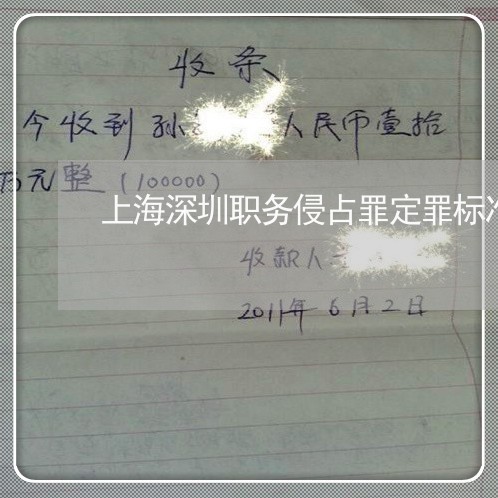 收条
今收到孙 人民币壹拾
万元整(100000)
上海深圳职务侵占罪定罪标准
收款人
2011年6月2日